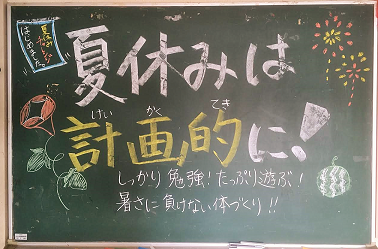 夏休み
チャレンジ
はじめました。
夏休みは
計画的に!
けい かく てき
しっかり勉強!たっぷり遊ぶ!
暑さに負けない体づくり!!